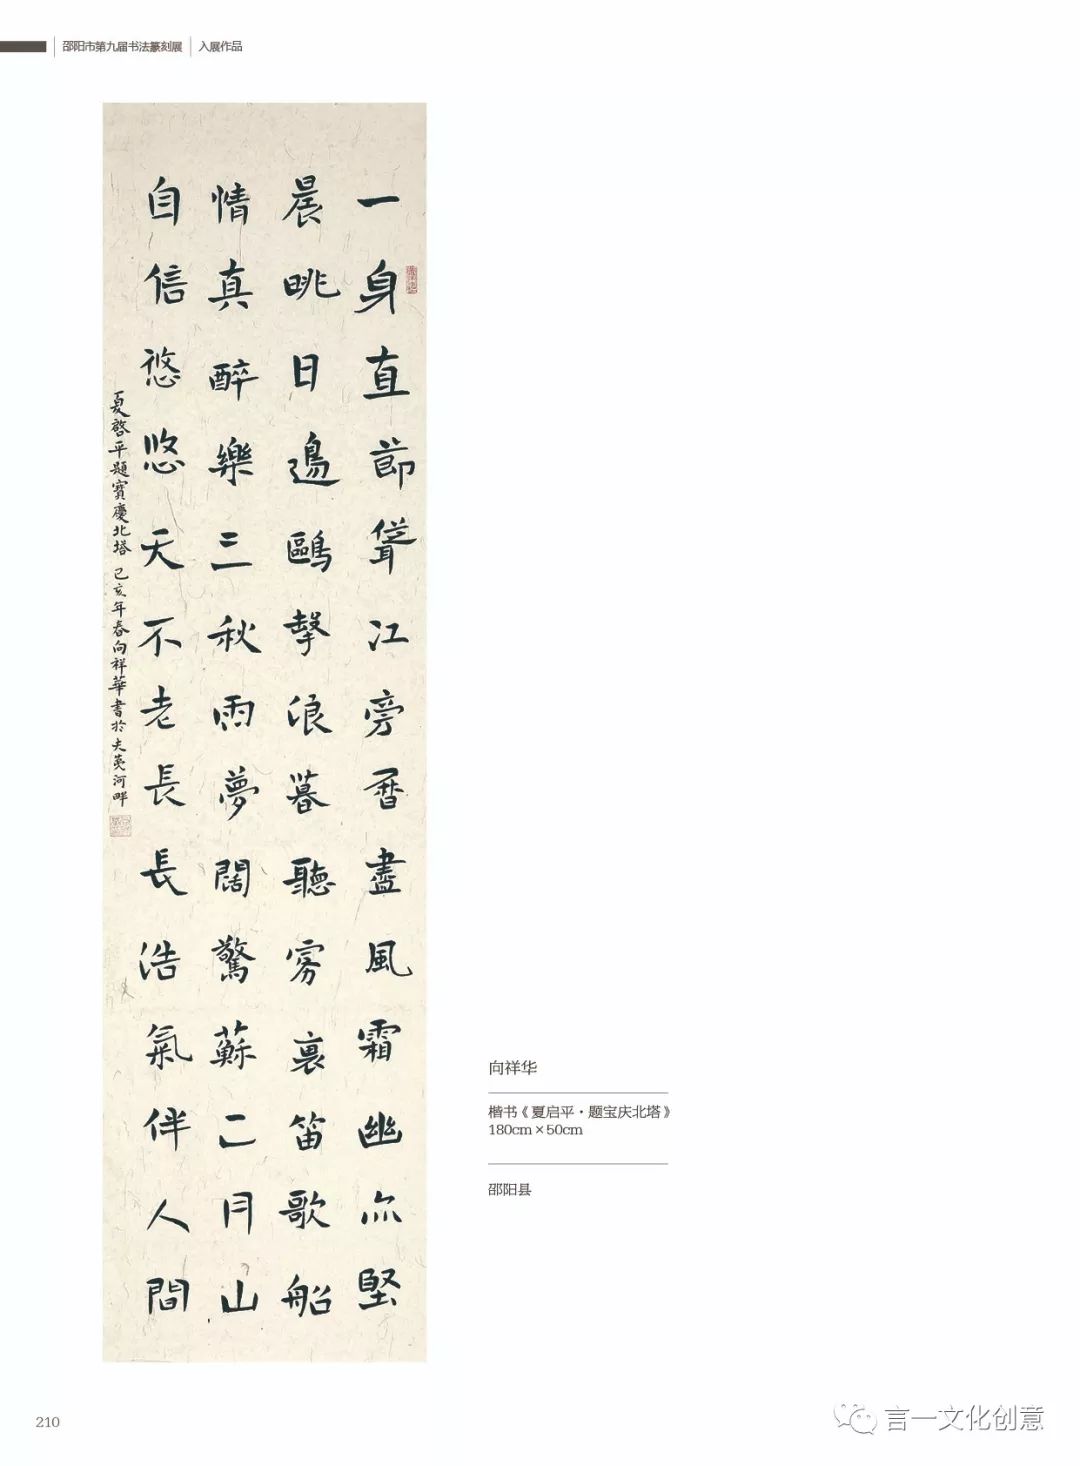 邵阳市第九届书法篆刻展 入展作品
一身直節聳江旁曆盡風霜幽亦堅
晨眺日邊鷗擊浪暮聽雾裏笛歌船
情真醉樂三秋雨夢闊驚蘇二月山
自信悠悠天不老長長浩氣伴人間
夏啓平題寶慶北塔 己亥年春向祥華書於夫夷河畔
向祥华
楷书《夏启平·题宝庆北塔》
180cm×50cm
邵阳县
210
言一文化创意